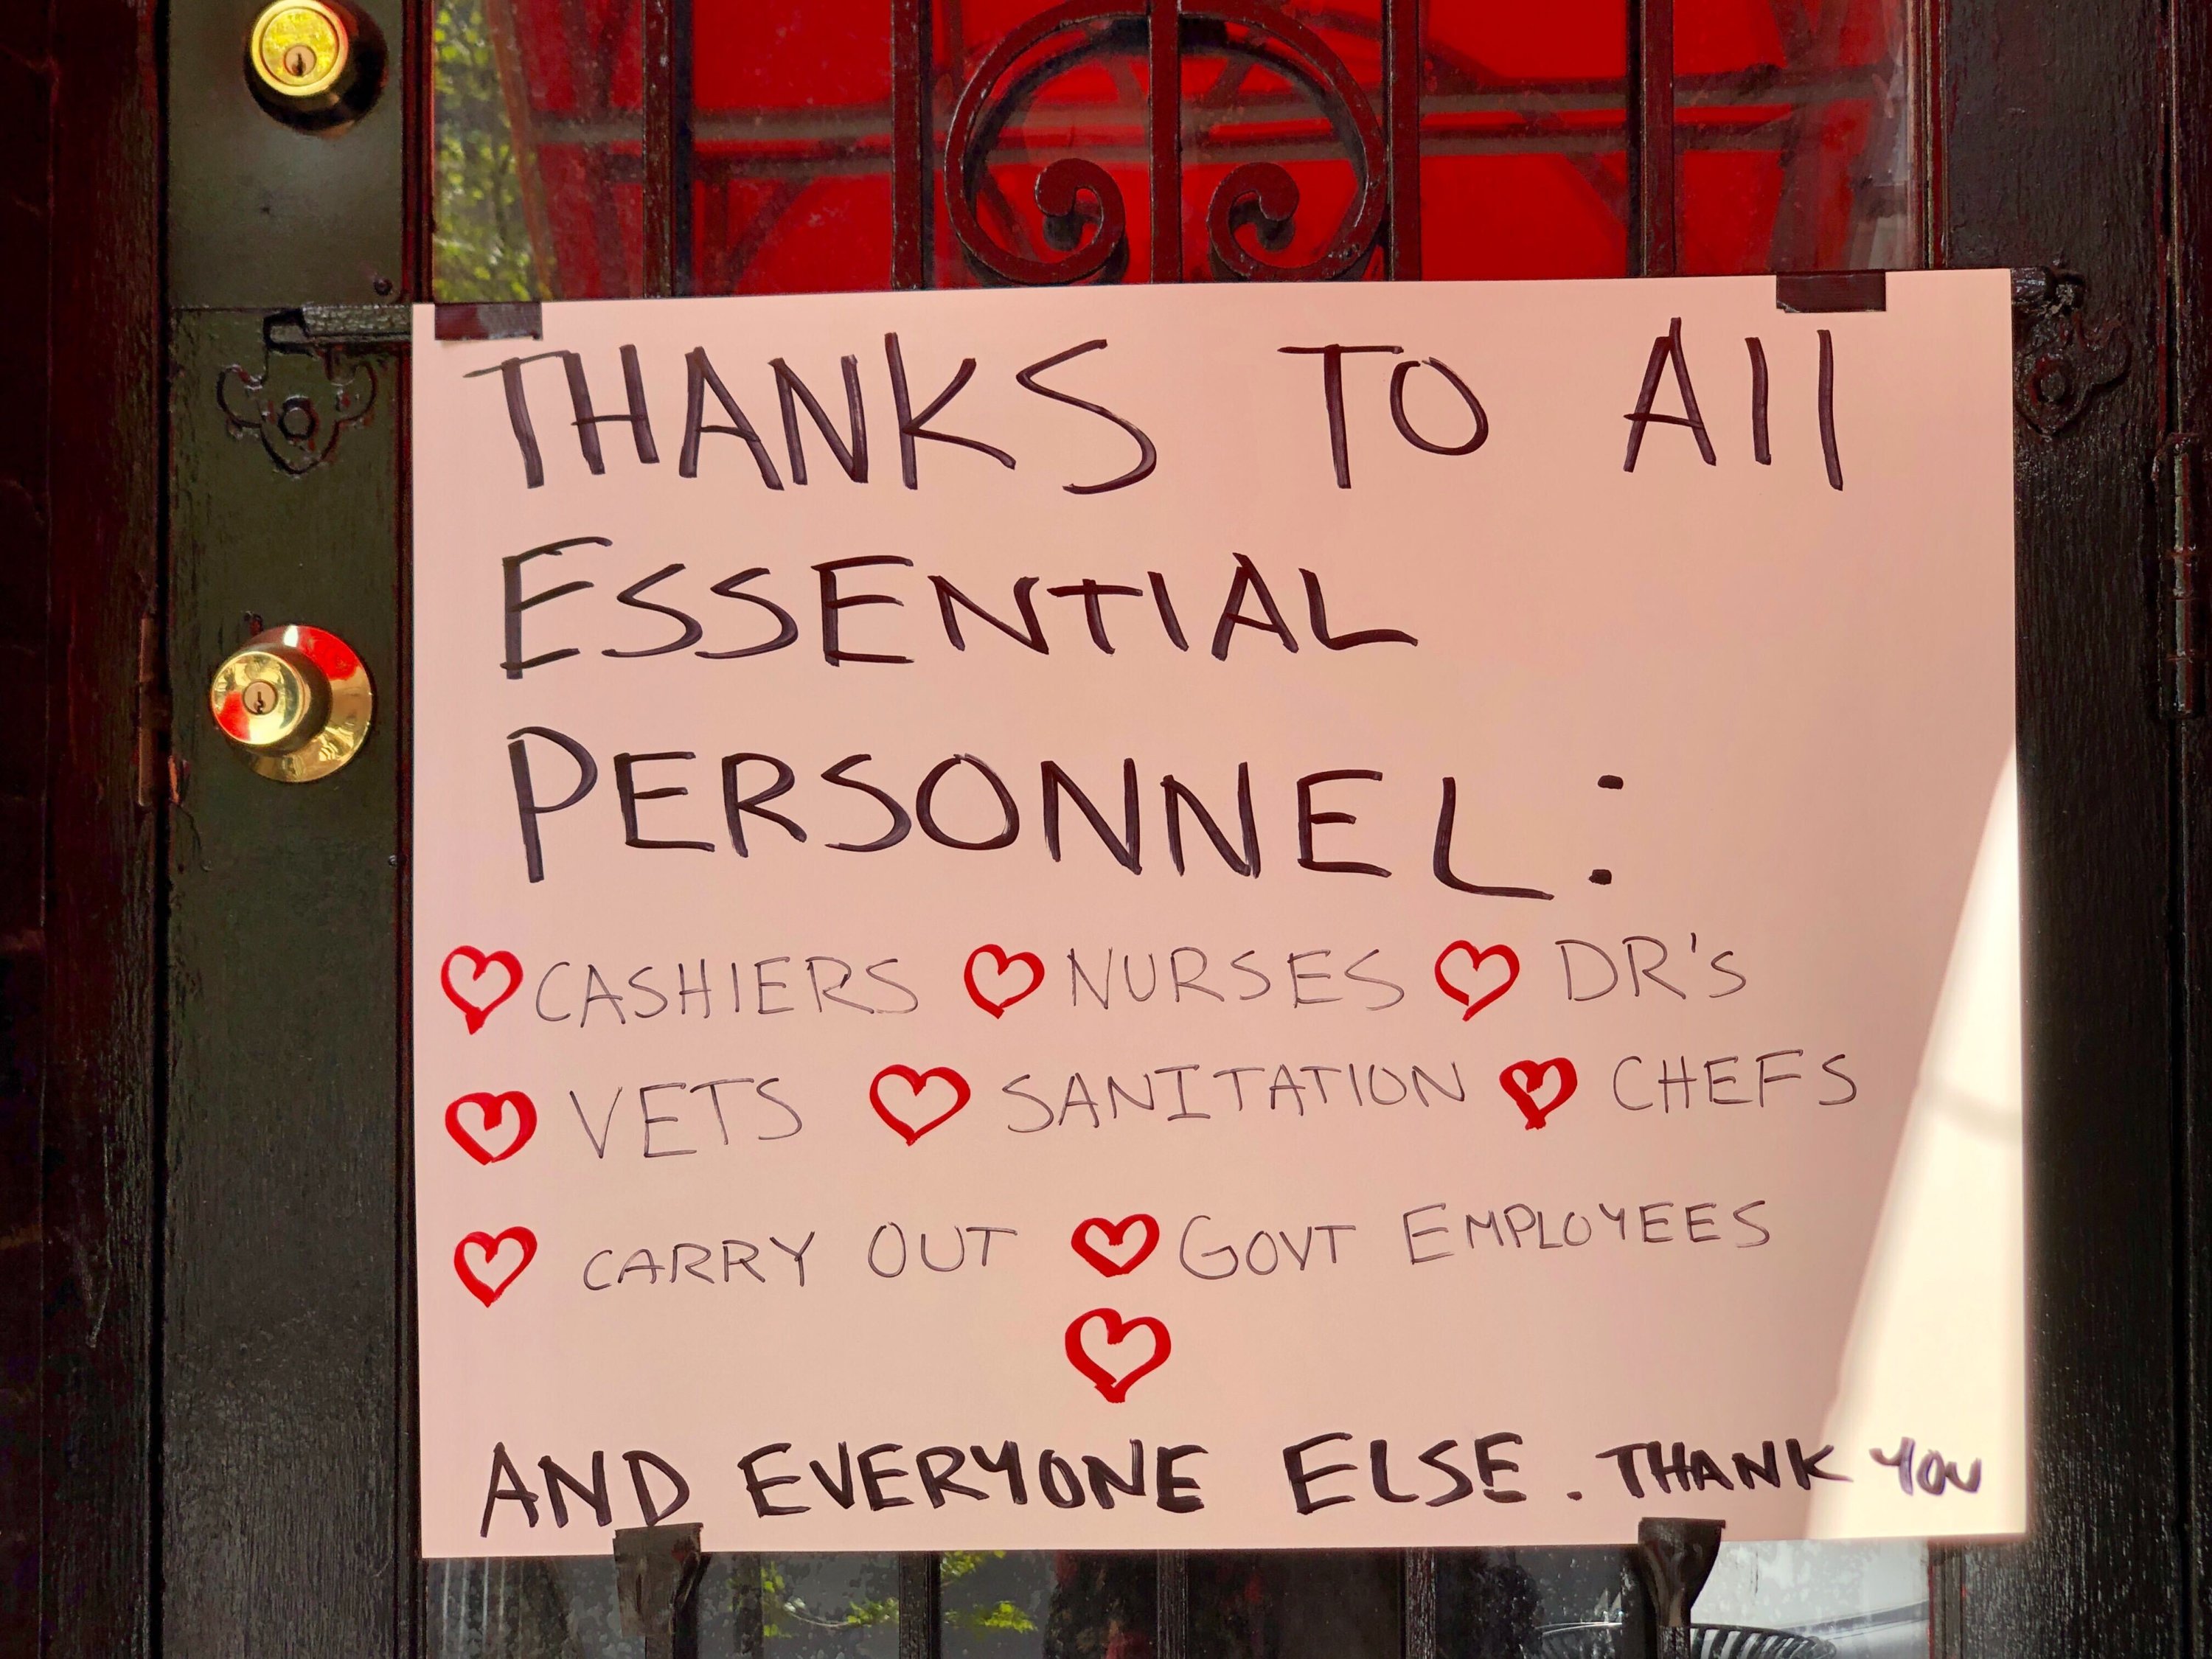 THANKS TO All
ESSENTIAL
PERSONNEL:
CASHIERS NURSES DR's
VETS SANITATION CHEFS
CARRY OUT GOVT EMPLOYEES
AND EVERYONE ELSE. THANK YOU